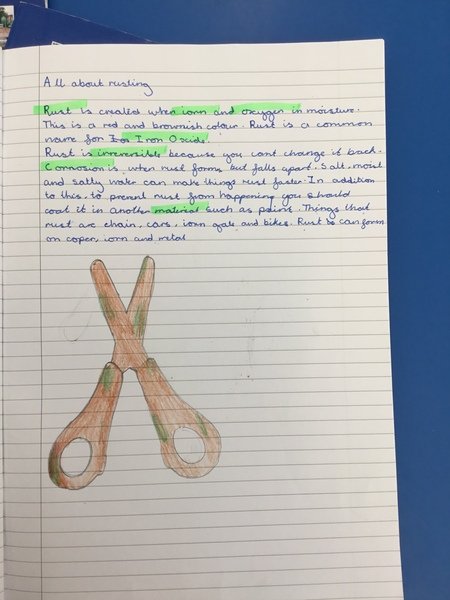 All about rusting
Rust is created when iorn and oxygen in moisture.
This is a red and brownish colour. Rust is a common
name for Iron Oxide.
Rust is irreversible because you cant change it back.
Corrosion is when rust forms but falls apart. Salt, moist
and salty water can make things rust faster. In addition
to this, to prevent rust from happening you should
coat it in another material such as paint. Things that
rust are chain, cars, iorn gate and bikes. Rust can form
on coper, iorn and metal